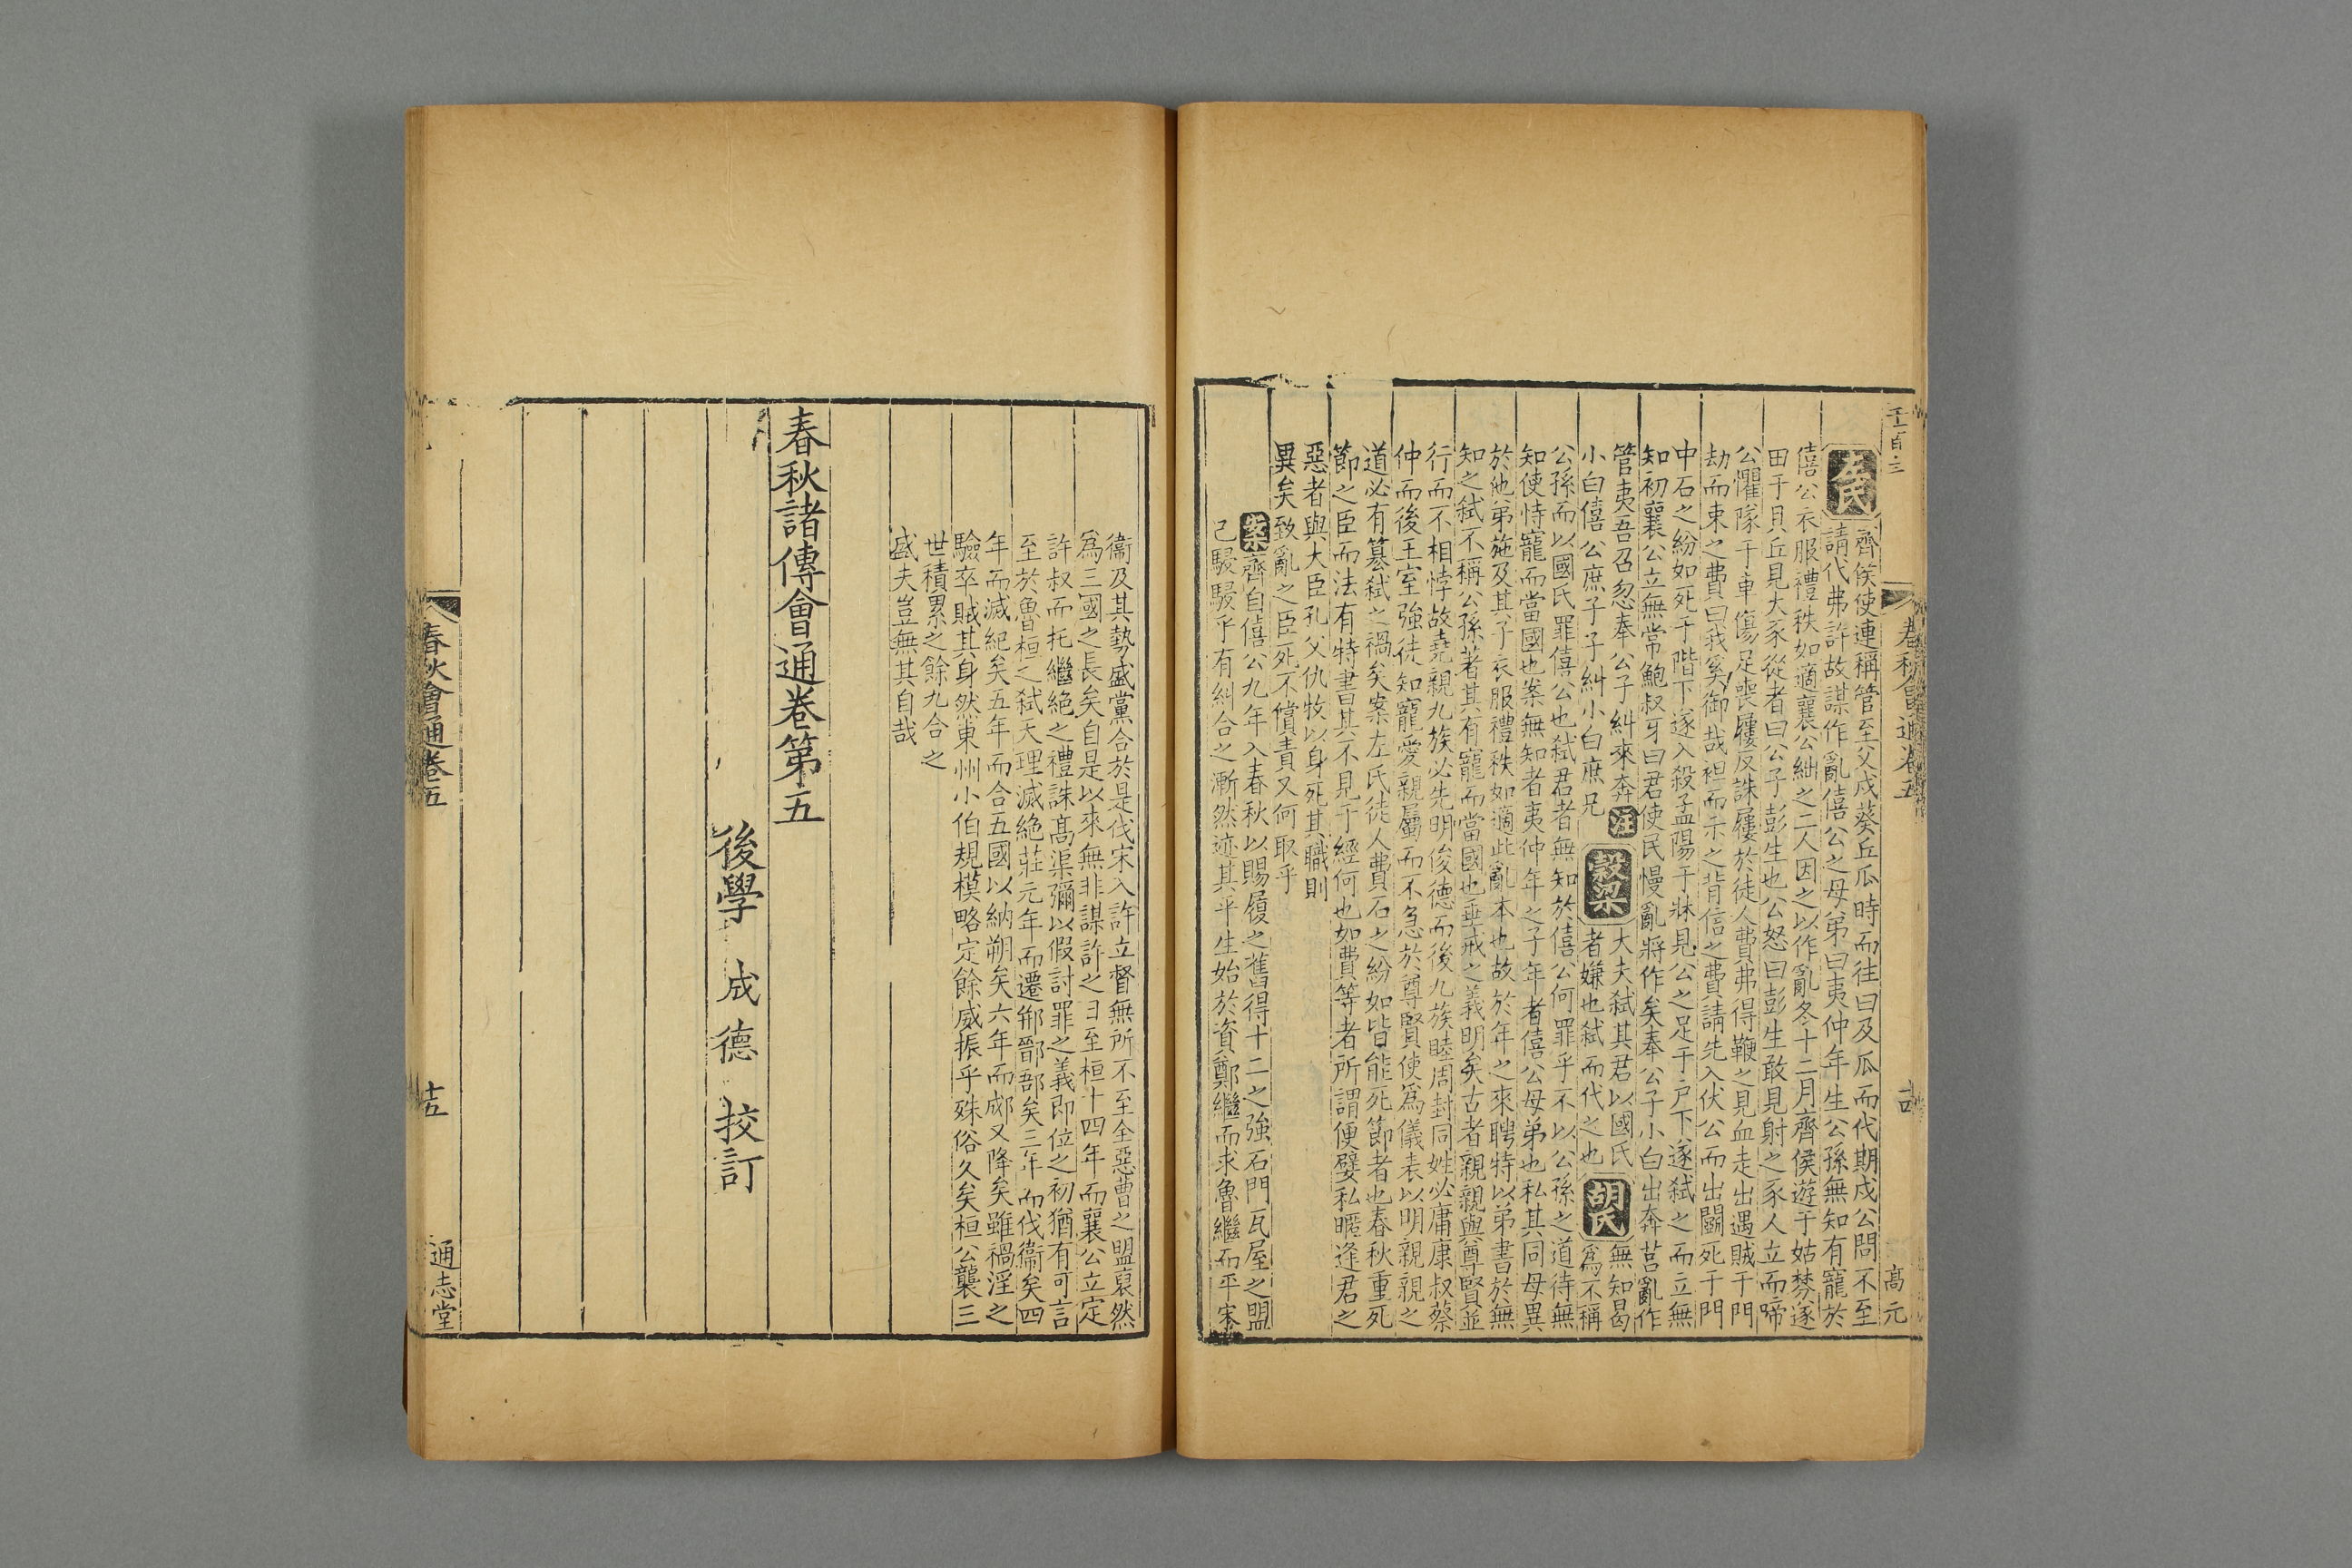 春秋會通卷五
高元
左氏
齊侯使連稱管至父戍葵丘瓜時而往曰及瓜而代期戍公問不至
請代弗許故謀作亂僖公之母弟曰夷仲年生公孫無知有寵於
僖公衣服禮秩如適襄公絀之二人因之以作亂冬十二月齊侯遊于姑棼遂
田于貝丘見大豕從者曰公子彭生也公怒曰彭生敢見射之豕人立而啼
公懼隊于車傷足喪屨反誅屨於徒人費弗得鞭之見血走出遇賊于門
劫而束之費曰我奚御哉袒而示之背信之費請先入伏公而出鬬死于門
中石之紛如死于階下遂入殺孟陽于牀見公之足于戶下遂弒之而立無
知初襄公立無常鮑叔牙曰君使民慢亂將作矣奉公子小白出奔莒亂作
管夷吾召忽奉公子糾來奔
汪
小白僖公庶子子糾小白庶兄
穀梁
大夫弒其君以國氏
者嫌也弒而代之也
胡氏
無知曷
為不稱
公孫而以國氏罪僖公也弒君者無知於僖公何罪乎不以公孫之道待無
知使恃寵而當國也案無知者夷仲年之子年者僖公母弟也私其同母異
於他弟施及其子衣服禮秩如適此亂本也故於年之來聘特以弟書於無
知之弒不稱公孫著其有寵而當國也垂戒之義明矣古者親親與尊賢並
行而不相悖故堯親九族必先明俊德而後九族睦周封同姓必庸康叔蔡
仲而後王室強徒知寵愛親屬而不急於尊賢使為儀表以明親親之
道必有篡弒之禍矣案左氏徒人費石之紛如皆能死節者也春秋重死
節之臣而法有特書其不見于經何也如費等者所謂便嬖私暱逢君之
惡者與大臣孔父仇牧以身死其職則
異矣致亂之臣死不償責又何取乎
案
齊自僖公九年入春秋以賜履之舊得十二之強石門瓦屋之盟
已駸駸乎有糾合之漸然迹其平生始於資鄭繼而求魯繼而平宋
衞及其勢盛黨合於是伐宋入許立督無所不至全惡曹之盟裒然
為三國之長矣自是以來無非謀許之日至桓十四年而襄公立定
許叔而托繼絕之禮誅高渠彌以假討罪之義即位之初猶有可言
至於魯桓之弒天理滅絕莊元年而遷郱鄑郚矣三年而伐衞矣四
年而滅紀矣五年而合五國以納朔矣六年而郕又降矣雖禍淫之
驗卒賊其身然東州小伯規模略定餘威振乎殊俗久矣桓公襲三
世積累之餘九合之
盛夫豈無其自哉
春秋諸傳會通卷第五
後學 成 德 挍訂
春秋會通卷五
十五
通志堂